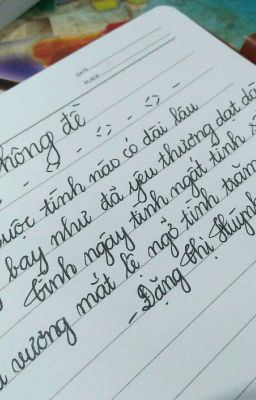 DATE
PLACE
không đề
- <> - <> - <> -
cuộc tình nào có dài lâu
bay như đã yêu thương dạt dà
tình ngây tình ngất tình
vương mắt lệ ngỡ tình trăm
- Đặng Thị Huỳnh